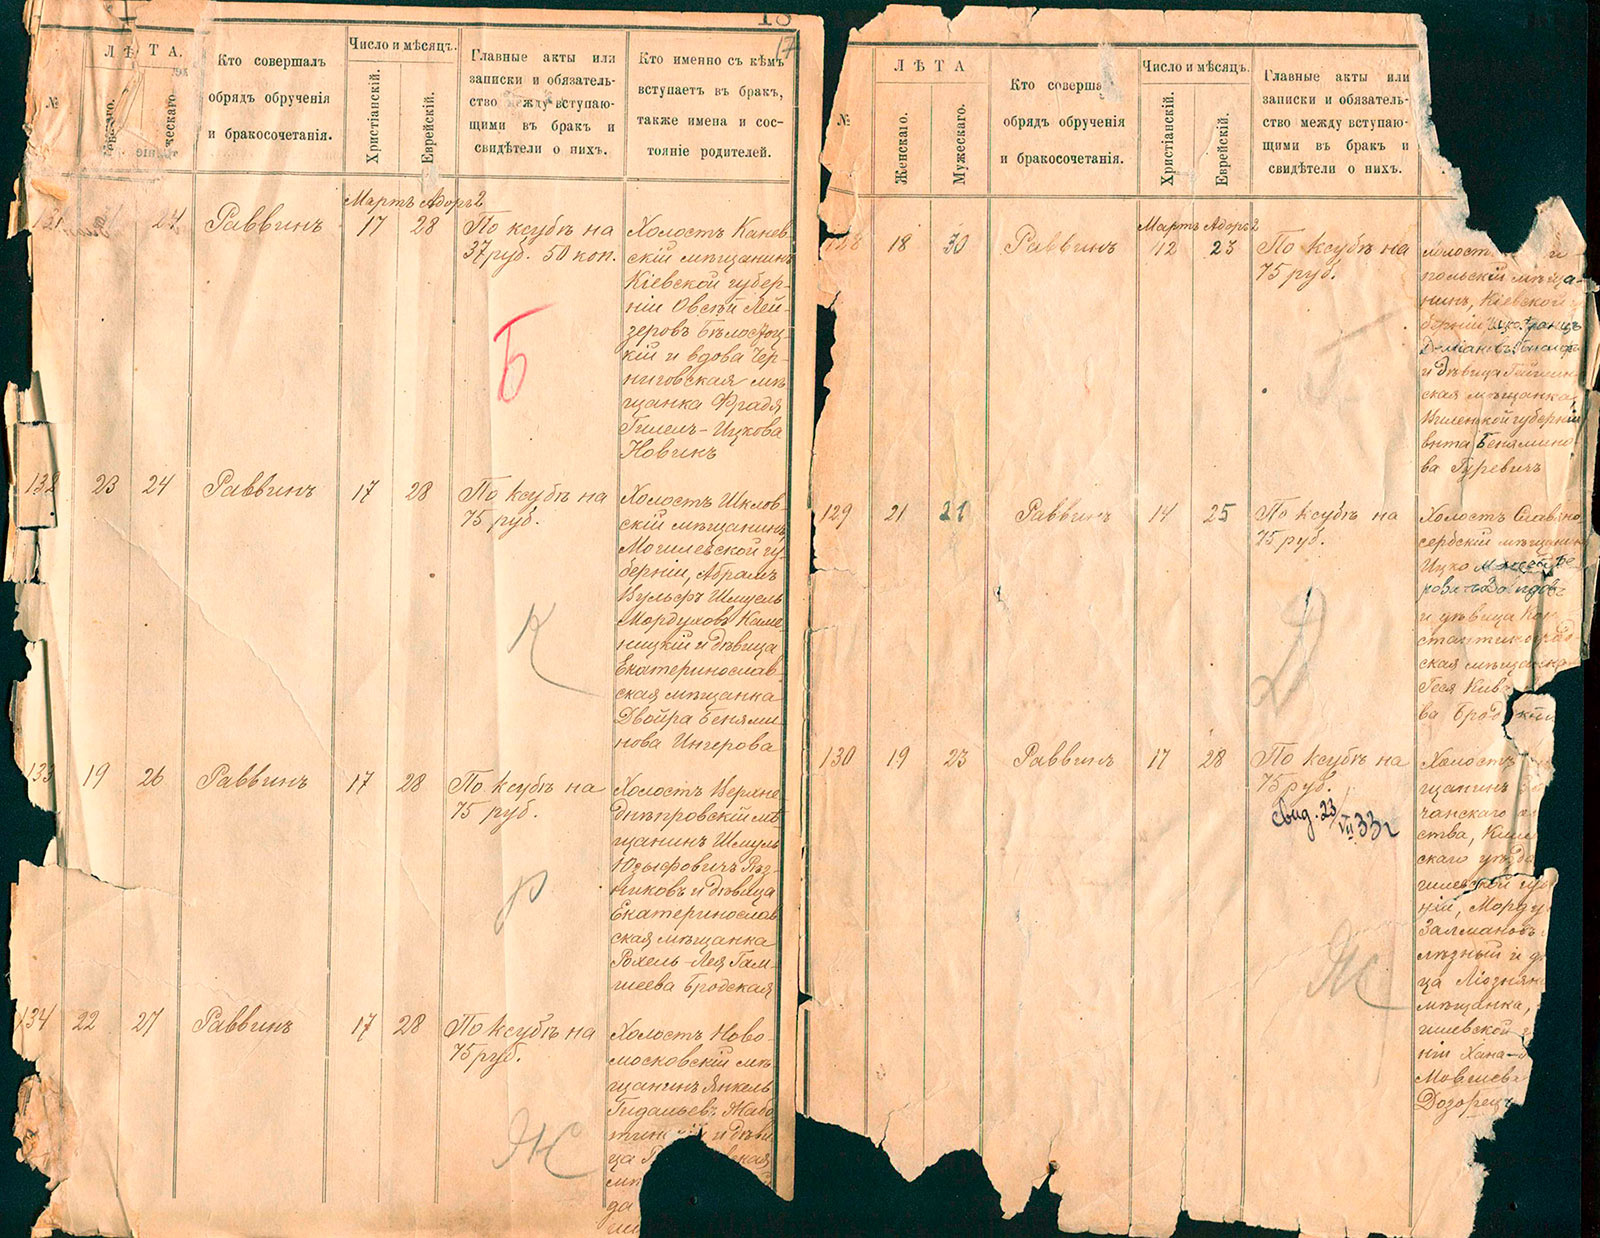 18
17
№
ЛѢТА.
Кто совершалъ
обрядъ обрученія
и бракосочетанія.
Число и мѣсяцъ.
Христіанскій.
Еврейскій.
Главные акты или
записки и обязатель-
ство между вступаю-
щими въ бракъ и
свидѣтели о нихъ.
Кто именно съ кѣмъ
вступаетъ въ бракъ,
также имена и сос-
тояніе родителей.
Мартъ Адоръ 2
131
24
Раввинъ
17
28
По ксубѣ на
37 руб. 50 коп.
Холостъ Канев-
скій мѣщанинъ
Кіевской губер-
ніи Овсѣй Лей-
зеровъ Бѣлоцер-
кій и вдова Чер-
ниговская мѣ-
щанка Фрадя
Гилель-Ицкова
Новинъ
Б
132
23
24
Раввинъ
17
28
По ксубѣ на
75 руб.
Холостъ Шклов-
скій мѣщанинъ,
Могилевской гу-
берніи, Абрамъ
Вульфъ Шмуель
Мордуховъ Каме-
ницкій и дѣвица
Екатеринослав-
ская мѣщанка
Двойра Бенями-
нова Ингерова
К
133
19
26
Раввинъ
17
28
По ксубѣ на
75 руб.
Холостъ Верхне-
днѣпровскій мѣ-
щанинъ Шмуль
Юзыфовичъ Рѣз-
никовъ и дѣвица
Екатеринослав
ская мѣщанка
Рохель-Лея Гам-
шеева Бродская
Р
134
22
27
Раввинъ
17
28
По ксубѣ на
75 руб.
Холостъ Ново-
московскій мѣ-
щанинъ Янкель
Гидальевъ Жабо-
и дѣви-
ца
Ж
№
ЛѢТА
Женскаго.
Мужескаго.
Кто соверша
обрядъ обрученія
и бракосочетанія.
Число и мѣсяцъ.
Христіанскій.
Еврейскій.
Главные акты или
записки и обязатель-
ство между вступаю-
щими въ бракъ и
свидѣтели о нихъ.
Мартъ Адоръ 2
128
18
30
Раввинъ
12
23
По ксубѣ на
75 руб.
польскій мѣща-
нинъ, Кіевской
берніи
и дѣвица
ская мѣщанка,
Виленской губерніи
Бенямино-
ва Гуревичъ
Г
129
21
21
Раввинъ
14
25
По ксубѣ на
75 руб.
Холостъ Славяно-
сербскій мѣщанин
Ицко
и дѣвица Кон
стантиноград
ская мѣщанка
Геся Кив
ва Бродскій
Д
130
19
23
Раввинъ
17
28
По ксубѣ на
75 руб.
свид. 23/VII 33 г
Холостъ
щанинъ
чанскаго
ства, Кли
скаго уѣзда
гилевской гу
ніи, Морду
Залмановъ
лѣзный и д
ца Лiознян
мѣщанка,
гилевской
ніи Хана-
Мовшева
Дозорецъ
Ж